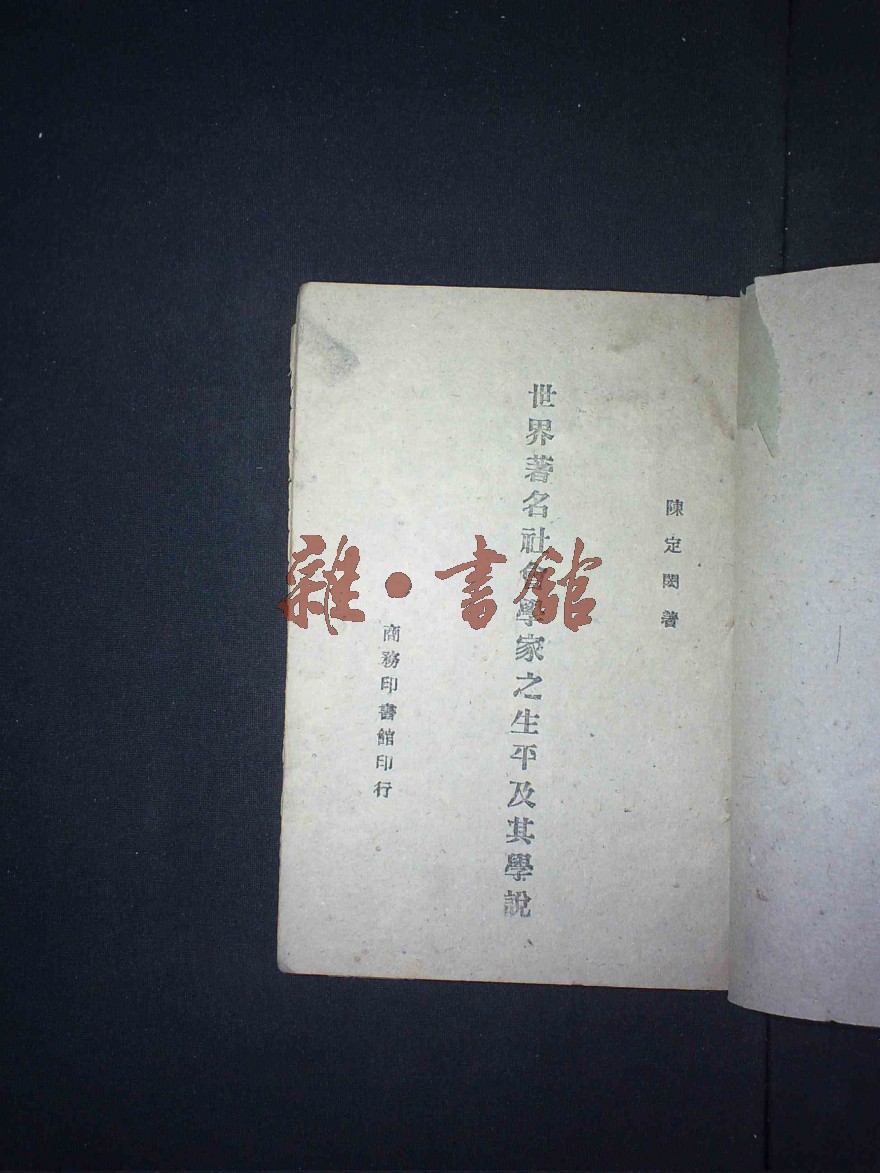 陳定閎著
世界著名社會學家之生平及其學說
商務印書館印行
雜·書館